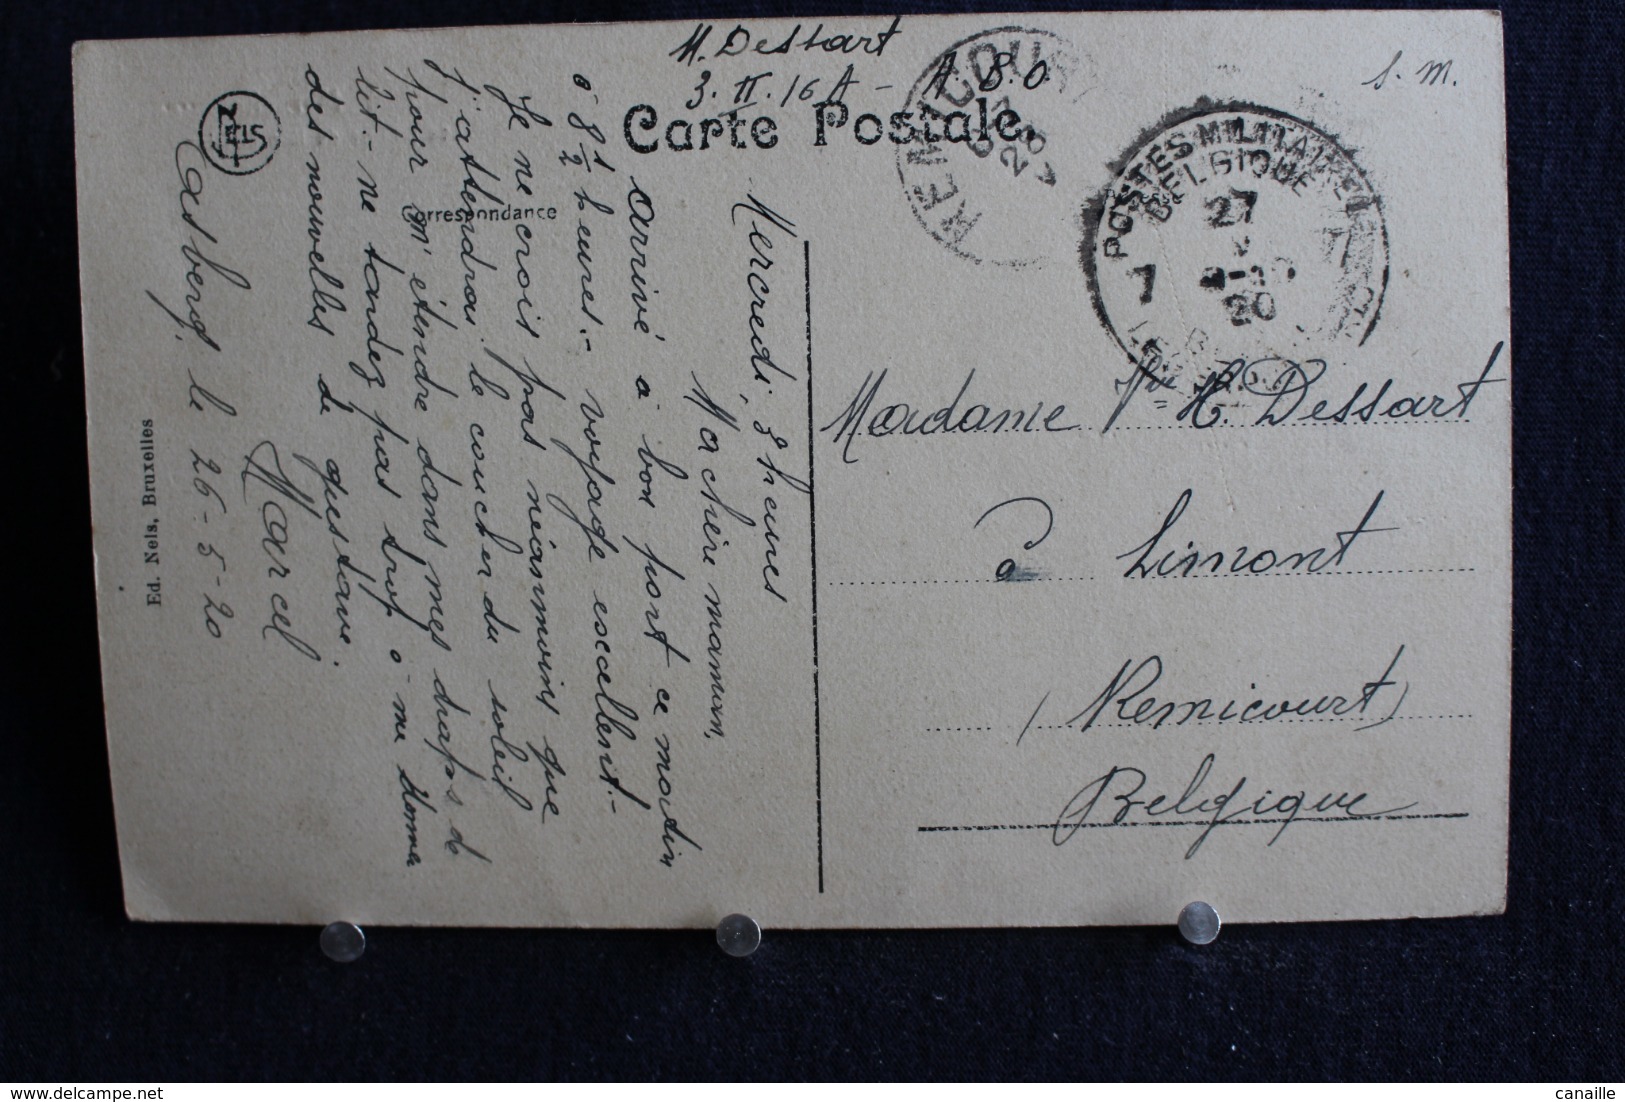 M. Dessart
3. II. 16 A - A. B. O
S. M.
Carte Postale.
Correspondance
NELS
REMICOURT
POSTES MILITAIRES
BELGIQUE
27
7
20
Mercredi, 8 heures
Ma chère maman,
Arrivé à bon port ce matin
à 8 1/2 heures.- voyage excellent.-
Je ne crois pas néanmoins que
j'attendrai le coucher du soleil
pour m'étendre dans mes draps de
lit.- ne tardez pas trop à me donner
des nouvelles de gustave.
Marcel
Asberg, le 26-5-20
Ed. Nels, Bruxelles
Madame Vve H. Dessart
à Limont
(Remicourt)
Belgique
canaille